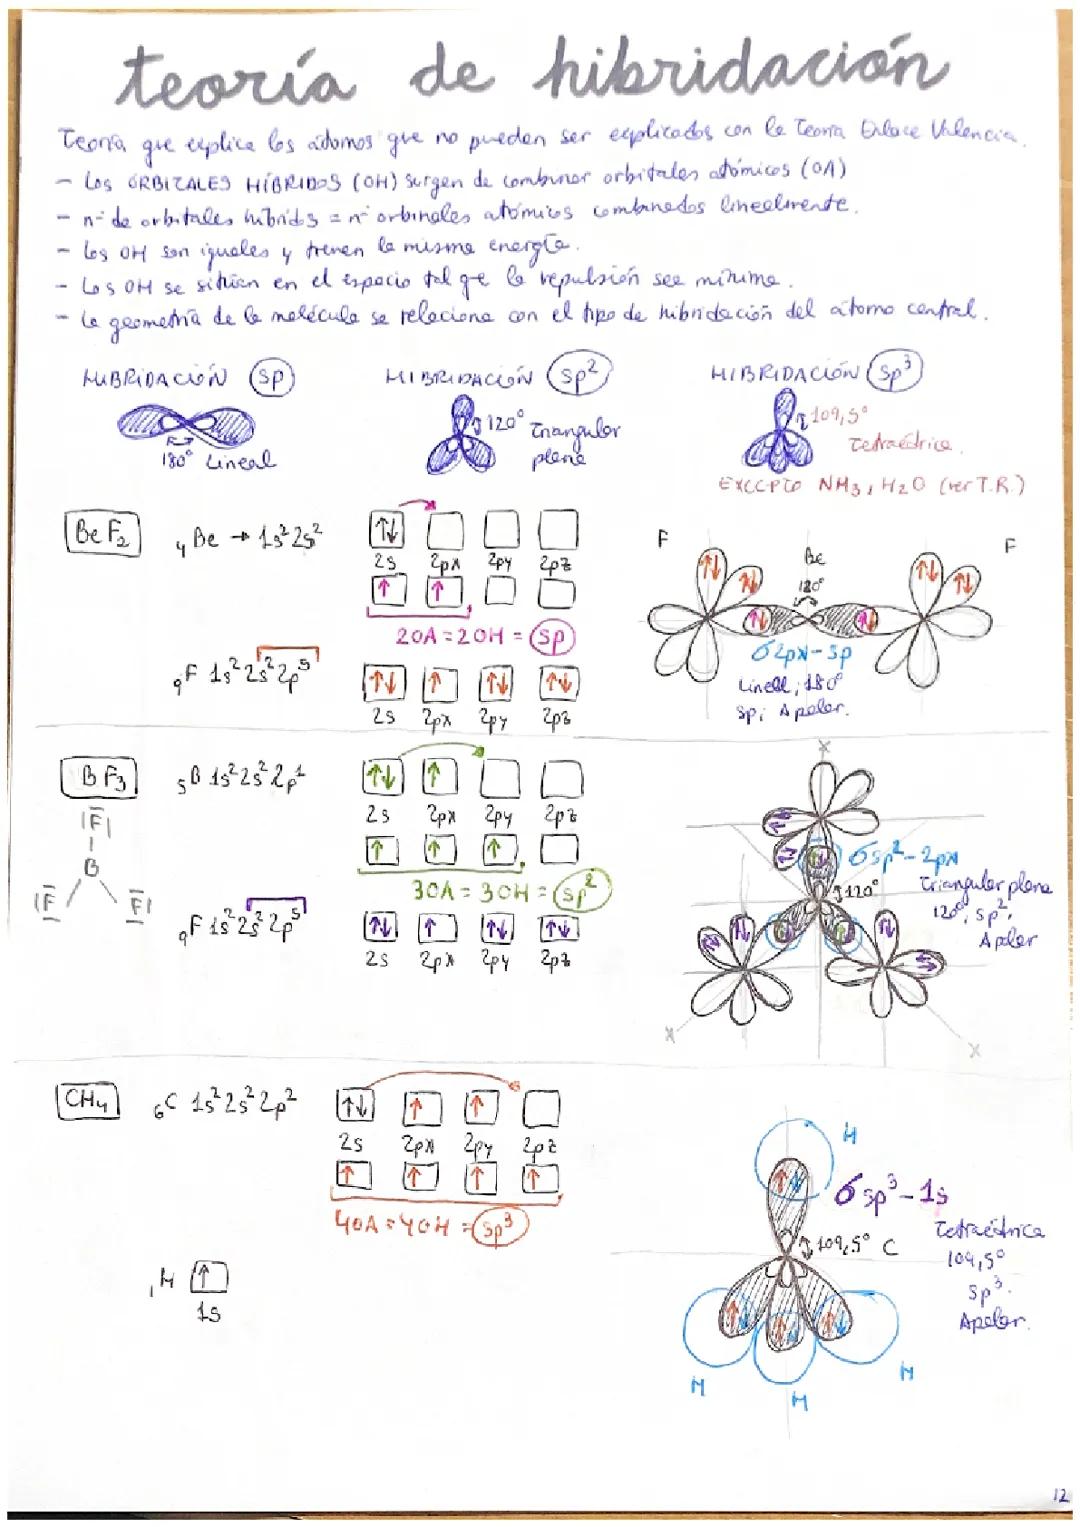 teoría de hibridación
Teoría que explica los átomos que no pueden ser explicados con la Teoría Enlace Valencia.
- Los ORBITALES HÍBRIDOS (OH) surgen de combinar orbitales atómicos (OA)
- nº de orbitales híbridos = nº orbitales atómicos combinados linealmente.
- Los OH son iguales y tienen la misma energía.
- Los OH se sitúan en el espacio tal que la repulsión sea mínima.
- La geometría de la molécula se relaciona con el tipo de hibridación del átomo central.
HIBRIDACIÓN sp HIBRIDACIÓN sp² HIBRIDACIÓN sp³
180° Lineal
120° Triangular
plana
109,5°
Tetraédrica.
EXCEPTO NH3, H2O (ver T.R.)
BeF2 4Be → 1s²2s²
2s 2px 2py 2pz
2OA = 2OH = sp
9F 1s²2s²2p⁵
2s 2px 2py 2pz
F Be F
180°
σ2px-sp
Lineal, 180°
sp, Apolar.
BF3 5B 1s²2s²2p¹
2s 2px 2py 2pz
|F|
B
|F F|
3OA = 3OH = sp²
9F 1s²2s²2p⁵
2s 2px 2py 2pz
X
σsp²-2px
120°
Triangular plana
120°, sp²,
Apolar
X X
CH4 6C 1s²2s²2p²
2s 2px 2py 2pz
4OA = 4OH = sp³
1H
1s
H
σsp³-1s
109,5° C
Tetraédrica
109,5°
sp³.
Apolar.
H H H
12